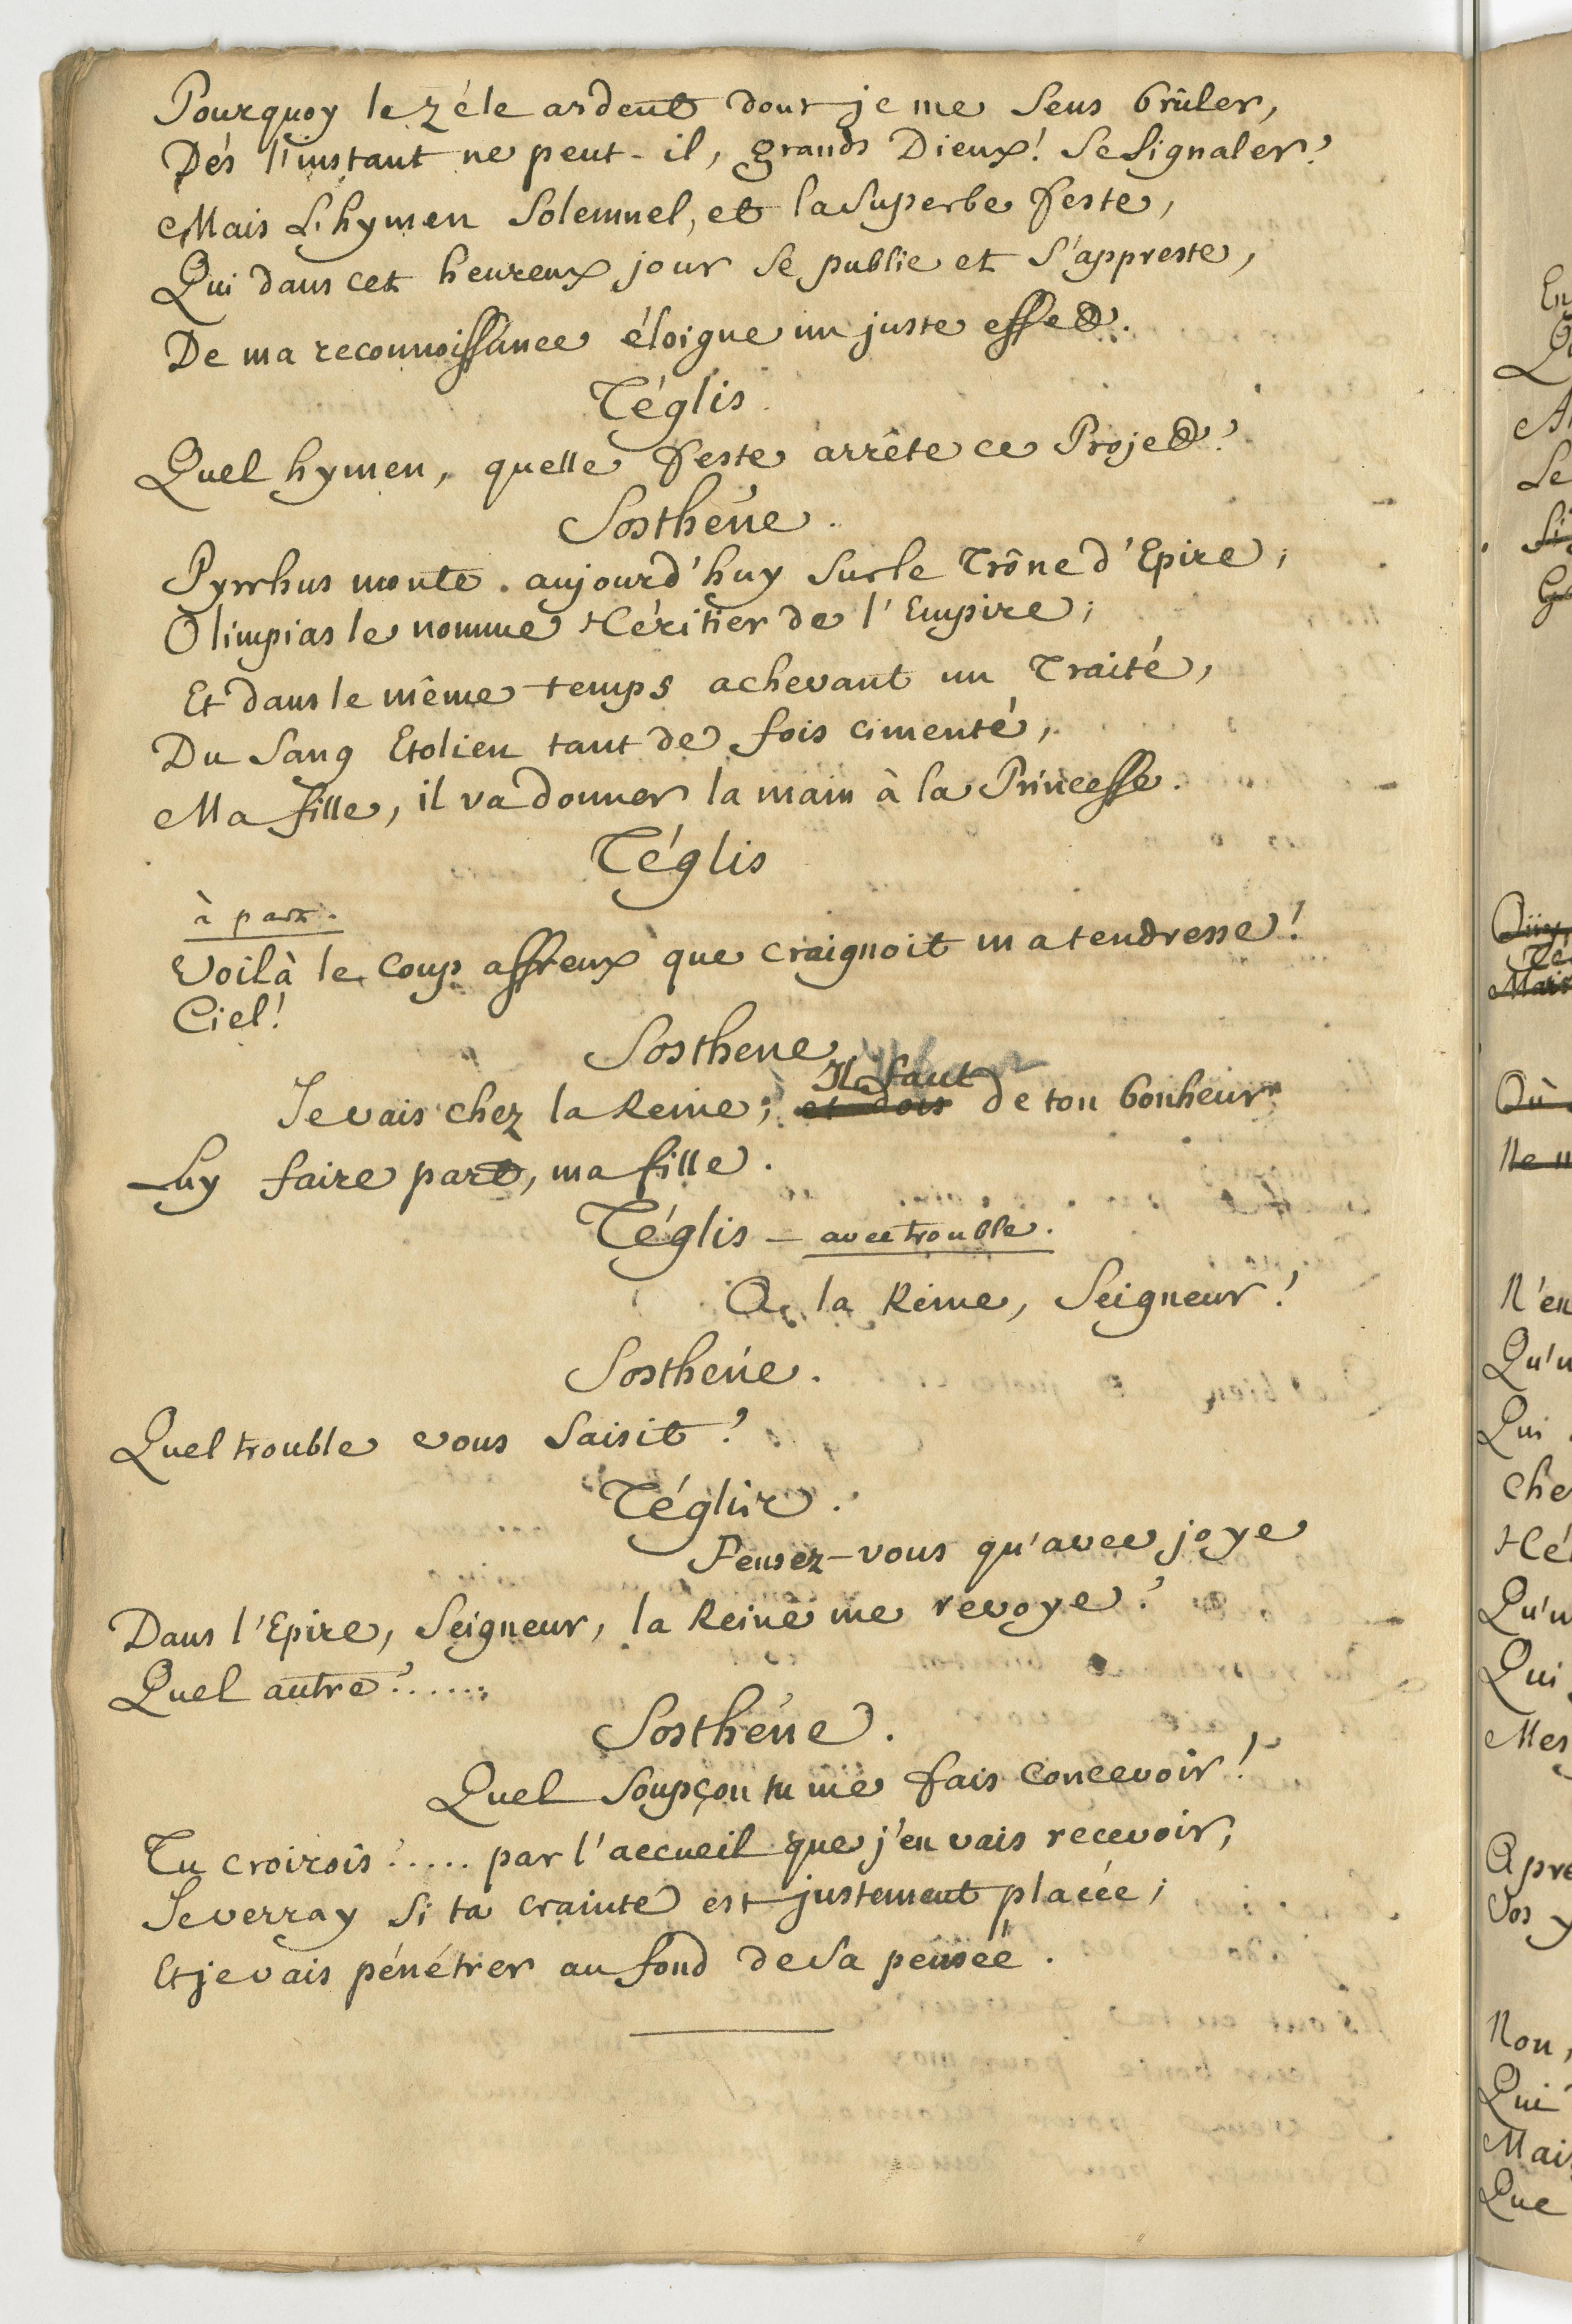 Pourquoy le zéle ardent dont je me sens brûler,
Dés l'instant ne peut-il, grands Dieux! se signaler?
Mais L'hymen solemnel, et la superbe feste,
Qui dans cet heureux jour se publie et s'appreste,
De ma reconnoissance éloigne un juste effect.
Téglis
Quel hymen, quelle feste arrête ce Project?
Sosthéne.
Pyrrhus monte aujourd'huy sur le Trône d'Epire;
Olimpias le nomme Héritier de l'Empire;
Et dans le même temps achevant un Traité,
Du sang Etolien tant de fois cimenté,
Ma fille, il va donner la main à la Princesse.
Téglis
à part.
Voilà le coup affreux que craignoit ma tendresse!
Ciel!
Sosthene
Il faut
Je vais chez la Reine; et dois de ton bonheur
Luy faire part, ma fille.
Téglis - avec trouble.
A la Reine, Seigneur!
Sosthéne.
Quel trouble vous saisit?
Téglis.
Pensez-vous qu'avec joye
Dans l'Epire, Seigneur, la Reine me revoye?
Quel autre?......
Sosthéne.
Quel soupçon tu me fais concevoir!
Tu croirois?..... par l'accueil que j'en vais recevoir,
Je verray si ta crainte est justement placée;
Et je vais pénétrer au fond de sa pensée.
En
Le
N'en
Qu'u
Qui
Che
Hé
Qu'u
Qui
Mes
Apre
Vos
Non,
Qui
Mais
Que